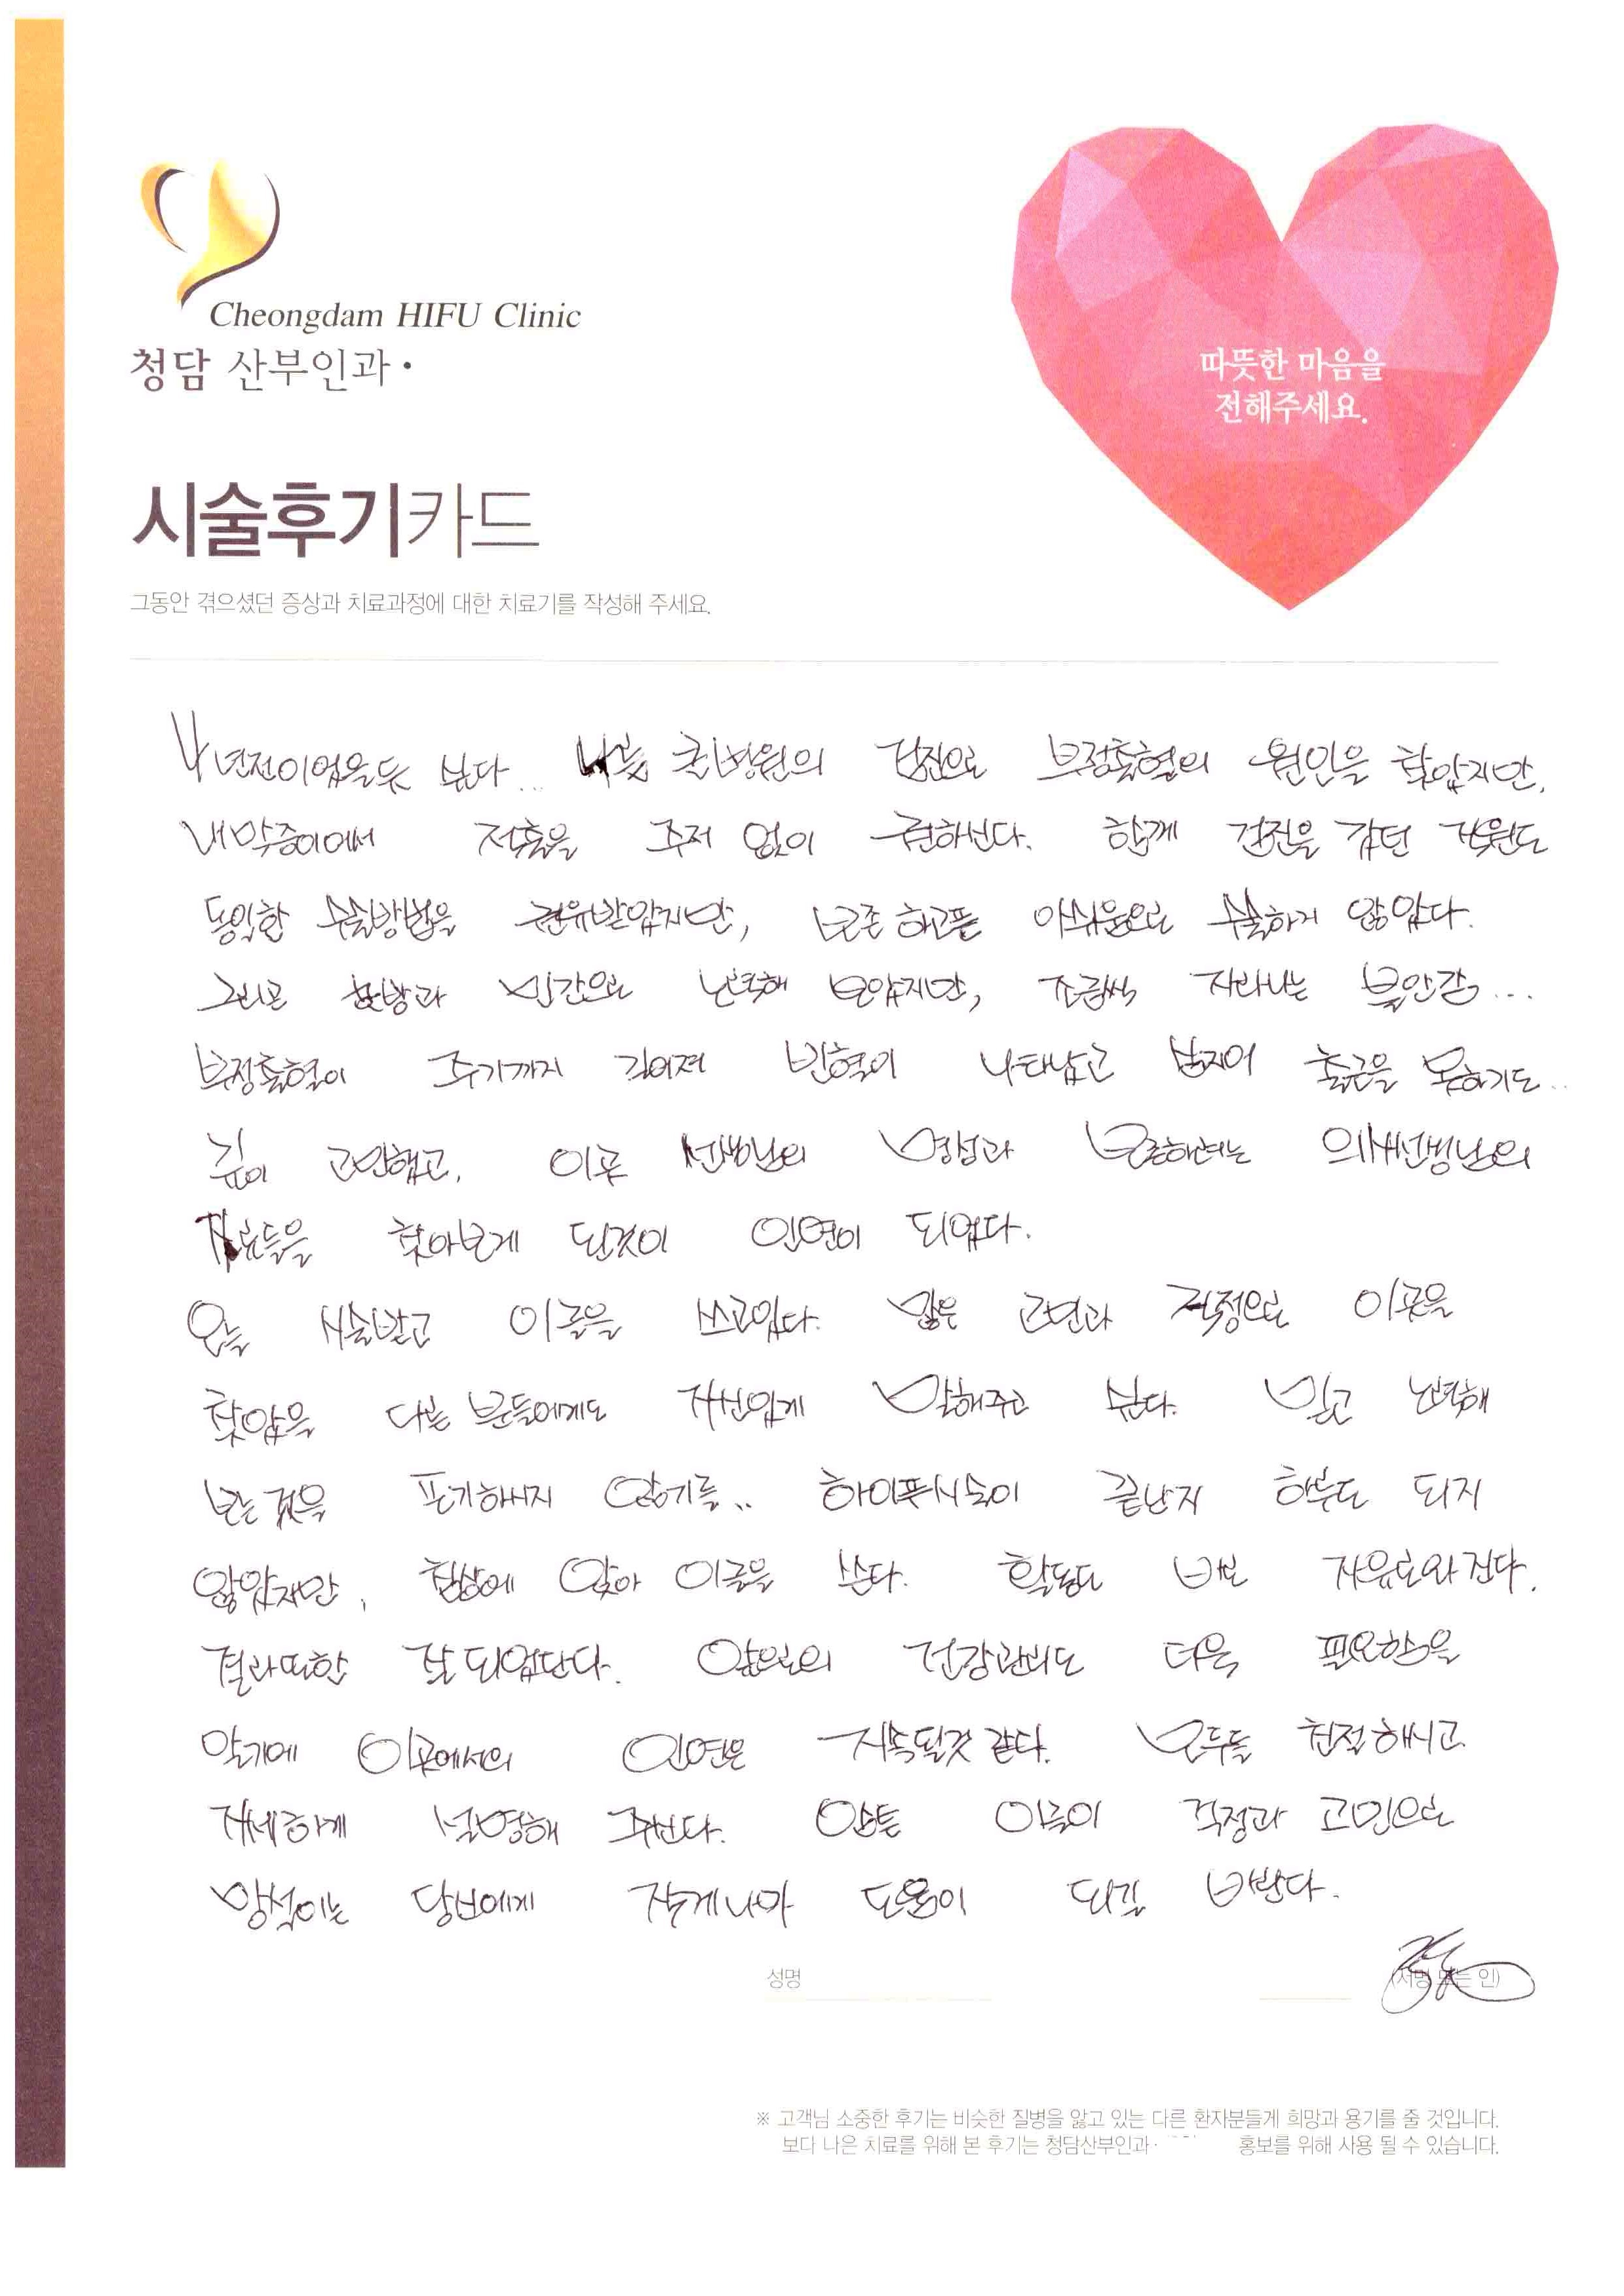 Cheongdam HIFU Clinic
청담 산부인과·
따뜻한 마음을
전해주세요.
시술후기카드
그동안 겪으셨던 증상과 치료과정에 대한 치료기를 작성해 주세요.
4년전이었을듯 싶다... 나름 큰병원의 검진으로 부정출혈의 원인을 찾았지만,
내막증이어서 적출을 주저 없이 권하신다. 함께 검진을 갔던 직원도
동일한 수술방법을 권유받았지만, 보존하고픈 아쉬움으로 수술하지 않았다.
그리곤 한방과 민간으로 노력해 보았지만, 조금씩 자라나는 불안감...
부정출혈이 주기까지 길어져 빈혈이 나타났고 심지어 출근을 못하기도..
깊이 고민했고, 이곳 선생님의 명성과 보존하려는 의사선생님의
자료들을 찾아보게 된것이 인연이 되었다.
오늘 시술받고 이글을 쓰고있다. 많은 고민과 걱정으로 이곳을
찾았을 다른 분들에게도 자신있게 말해주고 싶다. 믿고 노력해
보는 것을 포기하시지 않기를.. 하이푸시술이 끝난지 하루도 되지
않았지만, 침상에 앉아 이글을 쓴다. 활동도 바로 자유로와진다.
결과또한 잘 되었단다. 앞으로의 건강관리도 더욱 필요함을
알기에 이곳에서의 인연은 지속될것 같다. 모두들 친절하시고
자세하게 설명해 주신다. 암튼 이글이 걱정과 고민으로
망설이는 당신에게 작게나마 도움이 되길 바란다.
성명 (서명 또는 인)
※ 고객님 소중한 후기는 비슷한 질병을 앓고 있는 다른 환자분들게 희망과 용기를 줄 것입니다.
보다 나은 치료를 위해 본 후기는 청담산부인과· 홍보를 위해 사용 될 수 있습니다.